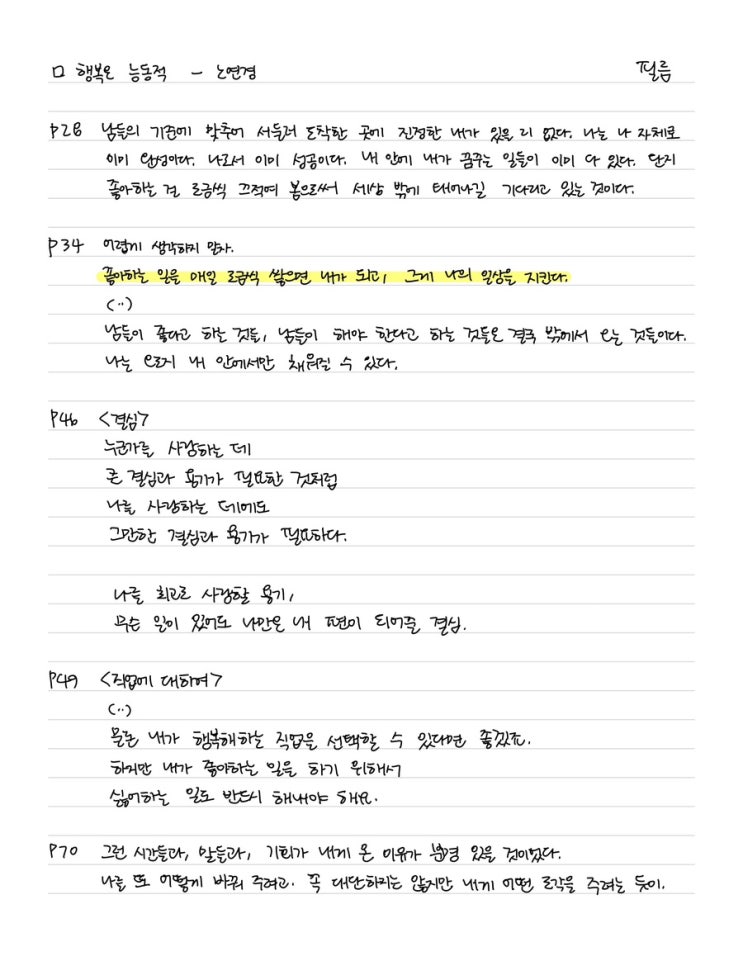 □ 행복은 능동적 - 노연경 필름
P28 남들의 기준에 맞추어 서둘러 도착한 곳에 진정한 내가 있을 리 없다. 나는 나 자체로
이미 완성이다. 나로서 이미 성공이다. 내 안에 내가 꿈꾸는 일들이 이미 다 있다. 단지
좋아하는 걸 조금씩 끄적여 봄으로써 세상 밖에 태어나길 기다리고 있는 것이다.
P34 어렵게 생각하지 말자.
좋아하는 일을 매일 조금씩 쌓으면 내가 되고, 그게 나의 일상을 지킨다.
(··)
남들이 좋다고 하는 것들, 남들이 해야 한다고 하는 것들은 결국 밖에서 오는 것들이다.
나는 오로지 내 안에서만 채워질 수 있다.
P46 <결심>
누군가를 사랑하는 데
큰 결심과 용기가 필요한 것처럼
나를 사랑하는 데에도
그만한 결심과 용기가 필요하다.
나를 최고로 사랑할 용기,
무슨 일이 있어도 나만은 내 편이 되어줄 결심.
P49 <직업에 대하여>
(··)
물론 내가 행복해하는 직업을 선택할 수 있다면 좋겠죠.
하지만 내가 좋아하는 일을 하기 위해서
싫어하는 일도 반드시 해내야 해요.
P70 그런 시간들과, 말들과, 기회가 내게 온 이유가 분명 있을 것이었다.
나를 또 어떻게 바꿔 주려고. 꼭 대단하지는 않지만 내게 어떤 조각을 주려는 듯이.